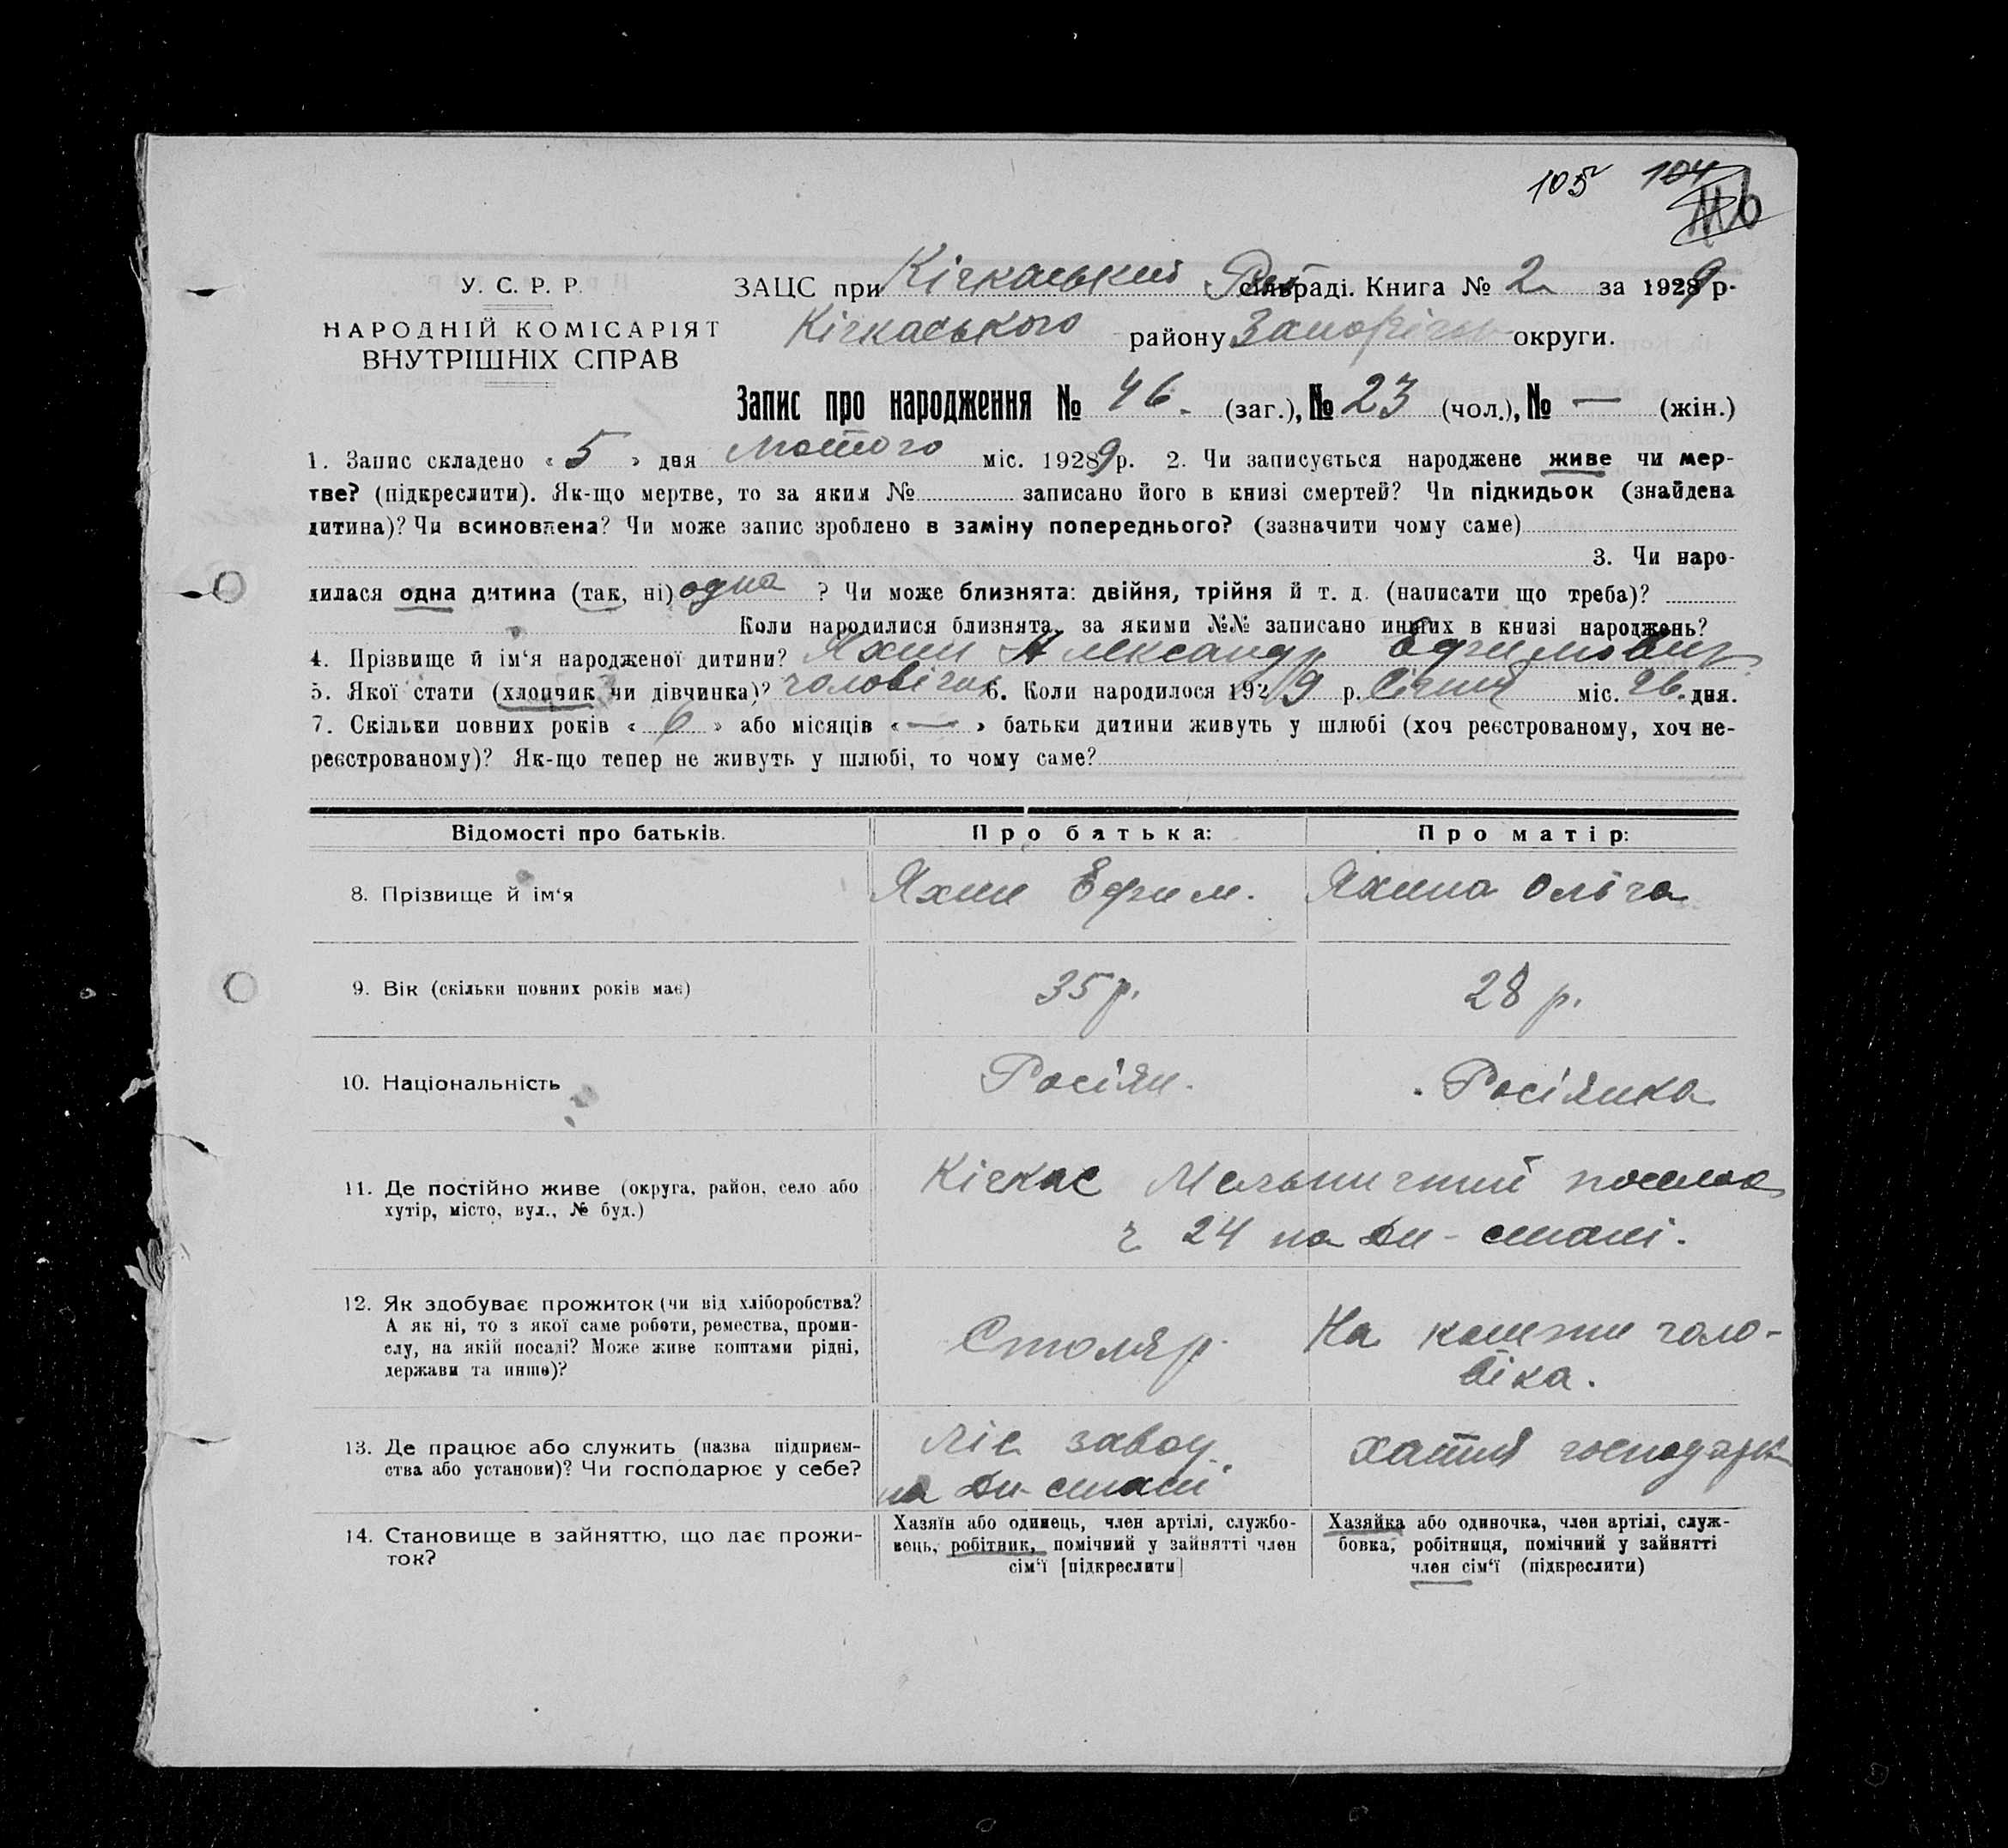 105 104
У. С. Р. Р.
НАРОДНІЙ КОМІСАРІЯТ
ВНУТРІШНІХ СПРАВ
ЗАЦС при Кічкаський сільраді. Книга № 2 за 1929 р.
Кічкаського району Запоріж округи.
Запис про народження № 46. (заг.), № 23 (чол.), № — (жін.)
1. Запис складено «5» дня лютого міс. 1929 р. 2. Чи записується народжене живе чи мер-
тве? (підкреслити). Як-що мертве, то за яким № записано його в книзі смертей? Чи підкидьок (знайдена
дитина)? Чи всиновлена? Чи може запис зроблено в заміну попереднього? (зазначити чому саме)
3. Чи наро-
дилася одна дитина (так, ні) одна ? Чи може близнята: двійня, трійня й т. д. (написати що треба)?
Коли народилися близнята, за якими №№ записано инших в книзі народжень?
4. Прізвище й ім'я народженої дитини? Яхин Александр Ефимович
5. Якої стати (хлопчик чи дівчинка)? чоловічої 6. Коли народилося 1929 р. Січня міс. 26. дня.
7. Скільки повних років «6» або місяців «—» батьки дитини живуть у шлюбі (хоч реєстрованому, хоч не-
реєстрованому)? Як-що тепер не живуть у шлюбі, то чому саме?
Відомості про батьків. Про батька: Про матір:
8. Прізвище й ім'я Яхин Ефим. Яхина Ольга
9. Вік (скільки повних років має) 35 р. 28 р.
10. Національність Росіян. Росіянка
11. Де постійно живе (округа, район, село або
хутір, місто, вул., № буд.)
Кічкас Мельничний поселок
ч 24 на Дн-стані.
12. Як здобуває прожиток (чи від хліборобства?
А як ні, то з якої саме роботи, ремества, проми-
слу, на якій посаді? Може живе коштами рідні,
держави та инше)?
Столяр. На кошти чоло-
віка.
13. Де працює або служить (назва підприєм-
ства або установи)? Чи господарює у себе?
Ліс завод
на Дн-стані
хатня господарк
14. Становище в зайняттю, що дає прожи-
ток?
Хазяїн або одинець, член артілі, службо-
вець, робітник, помічний у зайнятті член
сім'ї [підкреслити]
Хазяйка або одиночка, член артілі, служ-
бовка, робітниця, помічний у зайнятті
член сім'ї (підкреслити)